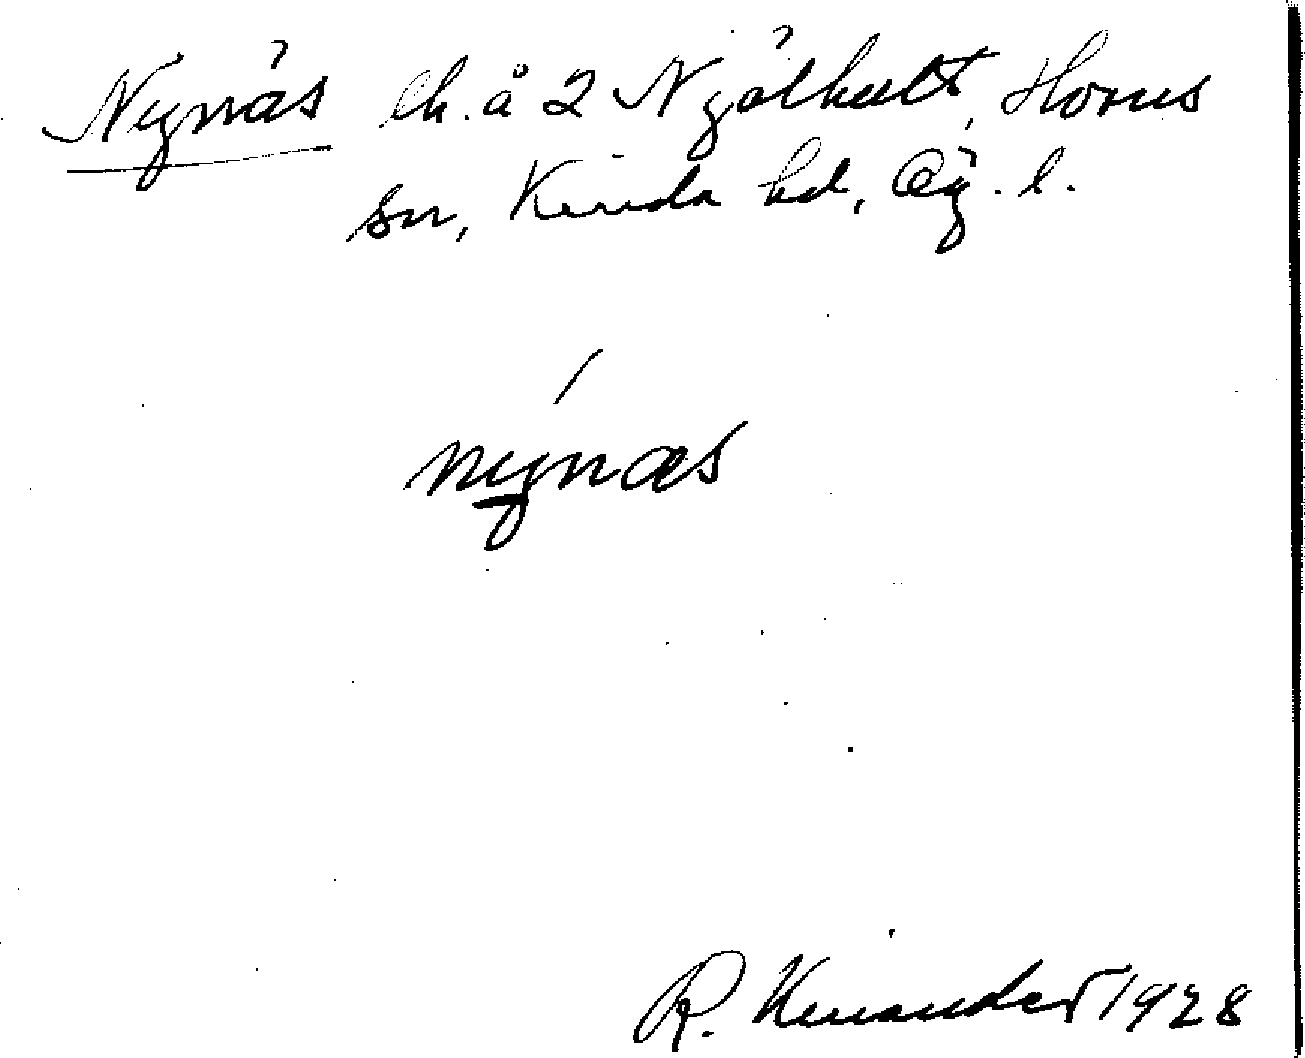 Nynäs lh. å 2 N Gölhult, Horns
sn, Kinda hd, Ög. l.
nynæs
R. Kenander 1928